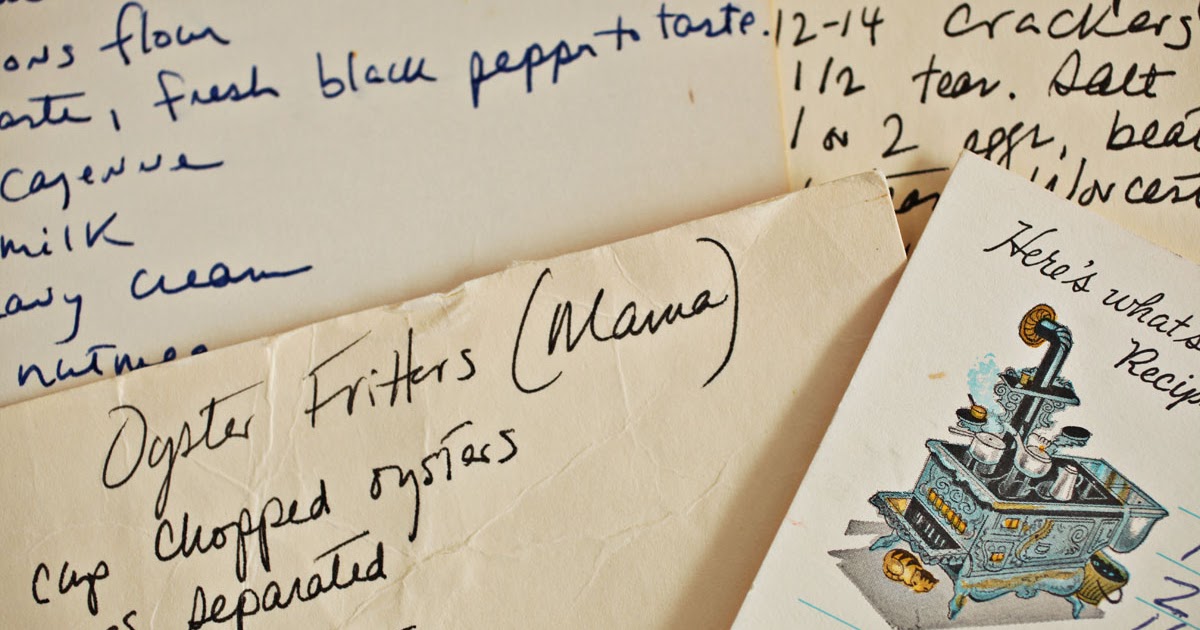 ons flour
aste, fresh black pepper to taste.
cayenne
milk
eavy cream
nutmeg
12-14 crackers
1/2 tea. salt
1 or 2 eggs, beat
Worcest
Oyster Fritters (Mama)
cup chopped oysters
separated
Here's what's
Recip